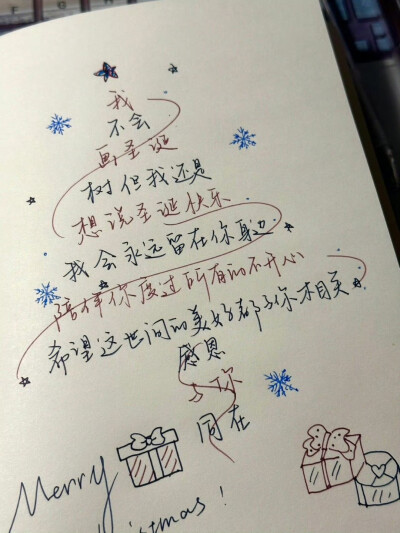 我
不会
画圣诞
树但我还是
想说圣诞快乐
我会永远留在你身边
陪伴你度过所有的不开心
希望这世间的美好都与你相关
感恩
与你
同在
Merry